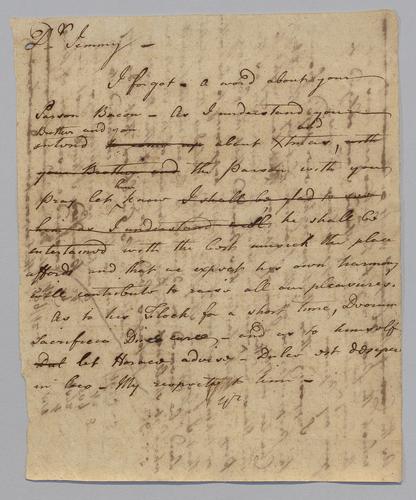 Dr. Jemmy -
I forgot - a word about your
Parson Bacon - As I understand your
Brother and you
and
intend to come up about Xtmas, with
your Brother and the Parson with you
Pray let him know I shall be glad to see
him as I understand will he shall be
entertained with the best musick the place
affords and that we expect his own harmony
will contribute to raise all our pleasures.
As to his Flock for a short time, Deorum
Sacrificia Diis curæ, - and as to himself
But let Horace advise - Dulce est desipere
in loco - My respects to him -